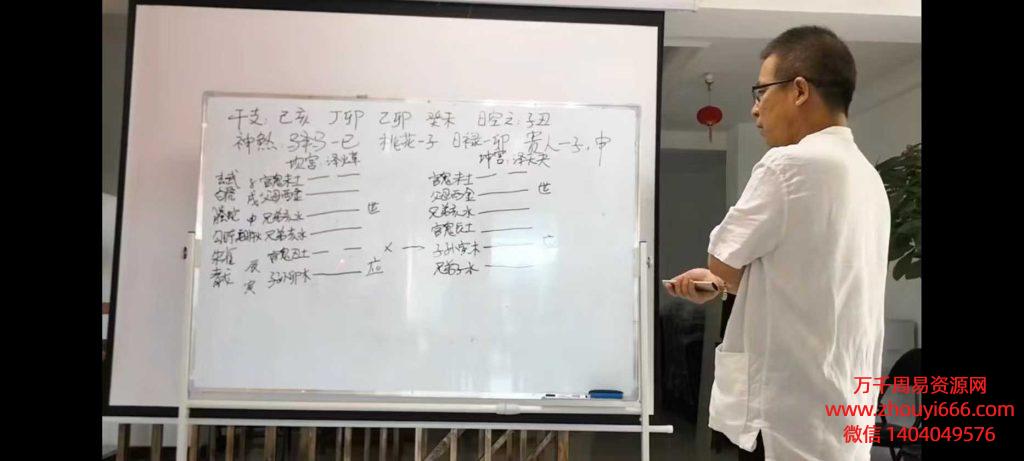 干支：己亥 丁卯 乙卯 癸未 日空亡：子丑
神煞：驿马一巳 桃花一子 日禄一卯 贵人一子，申
坎宫：泽火革 坤宫：泽天夬
玄武 官鬼未土 官鬼未土
白虎 戌 父母酉金 父母酉金 世
螣蛇 申 兄弟亥水 世 兄弟亥水
勾陈 兄弟亥水 官鬼辰土
朱雀 辰 官鬼丑土 × 子孙寅木 应
青龙 寅 子孙卯木 应 兄弟子水
万千周易资源网
www.zhouyi666.com
微信 1404049576